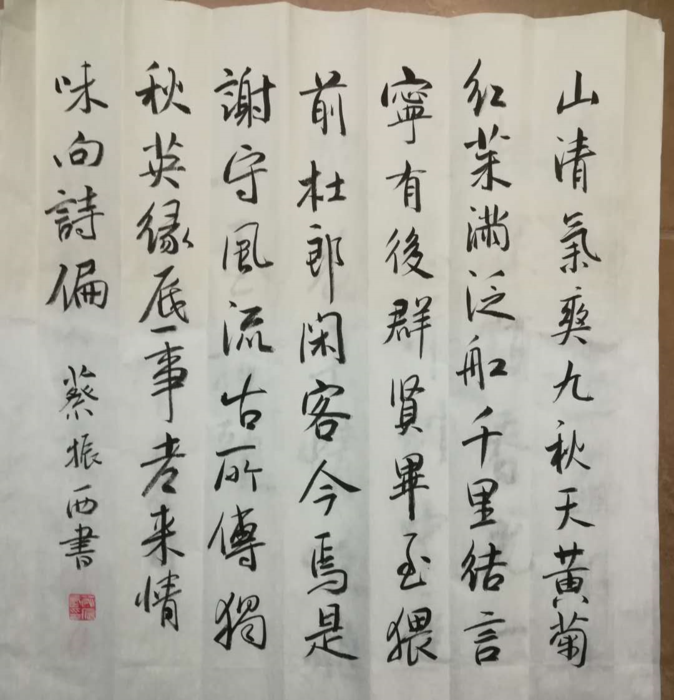 山清氣爽九秋天黃菊
紅茱滿泛船千里結言
寧有後群賢畢至猥
前杜郎閑客今焉是
謝守風流古所傳獨
秋英緣底事老来情
味向詩偏
蔡振西書